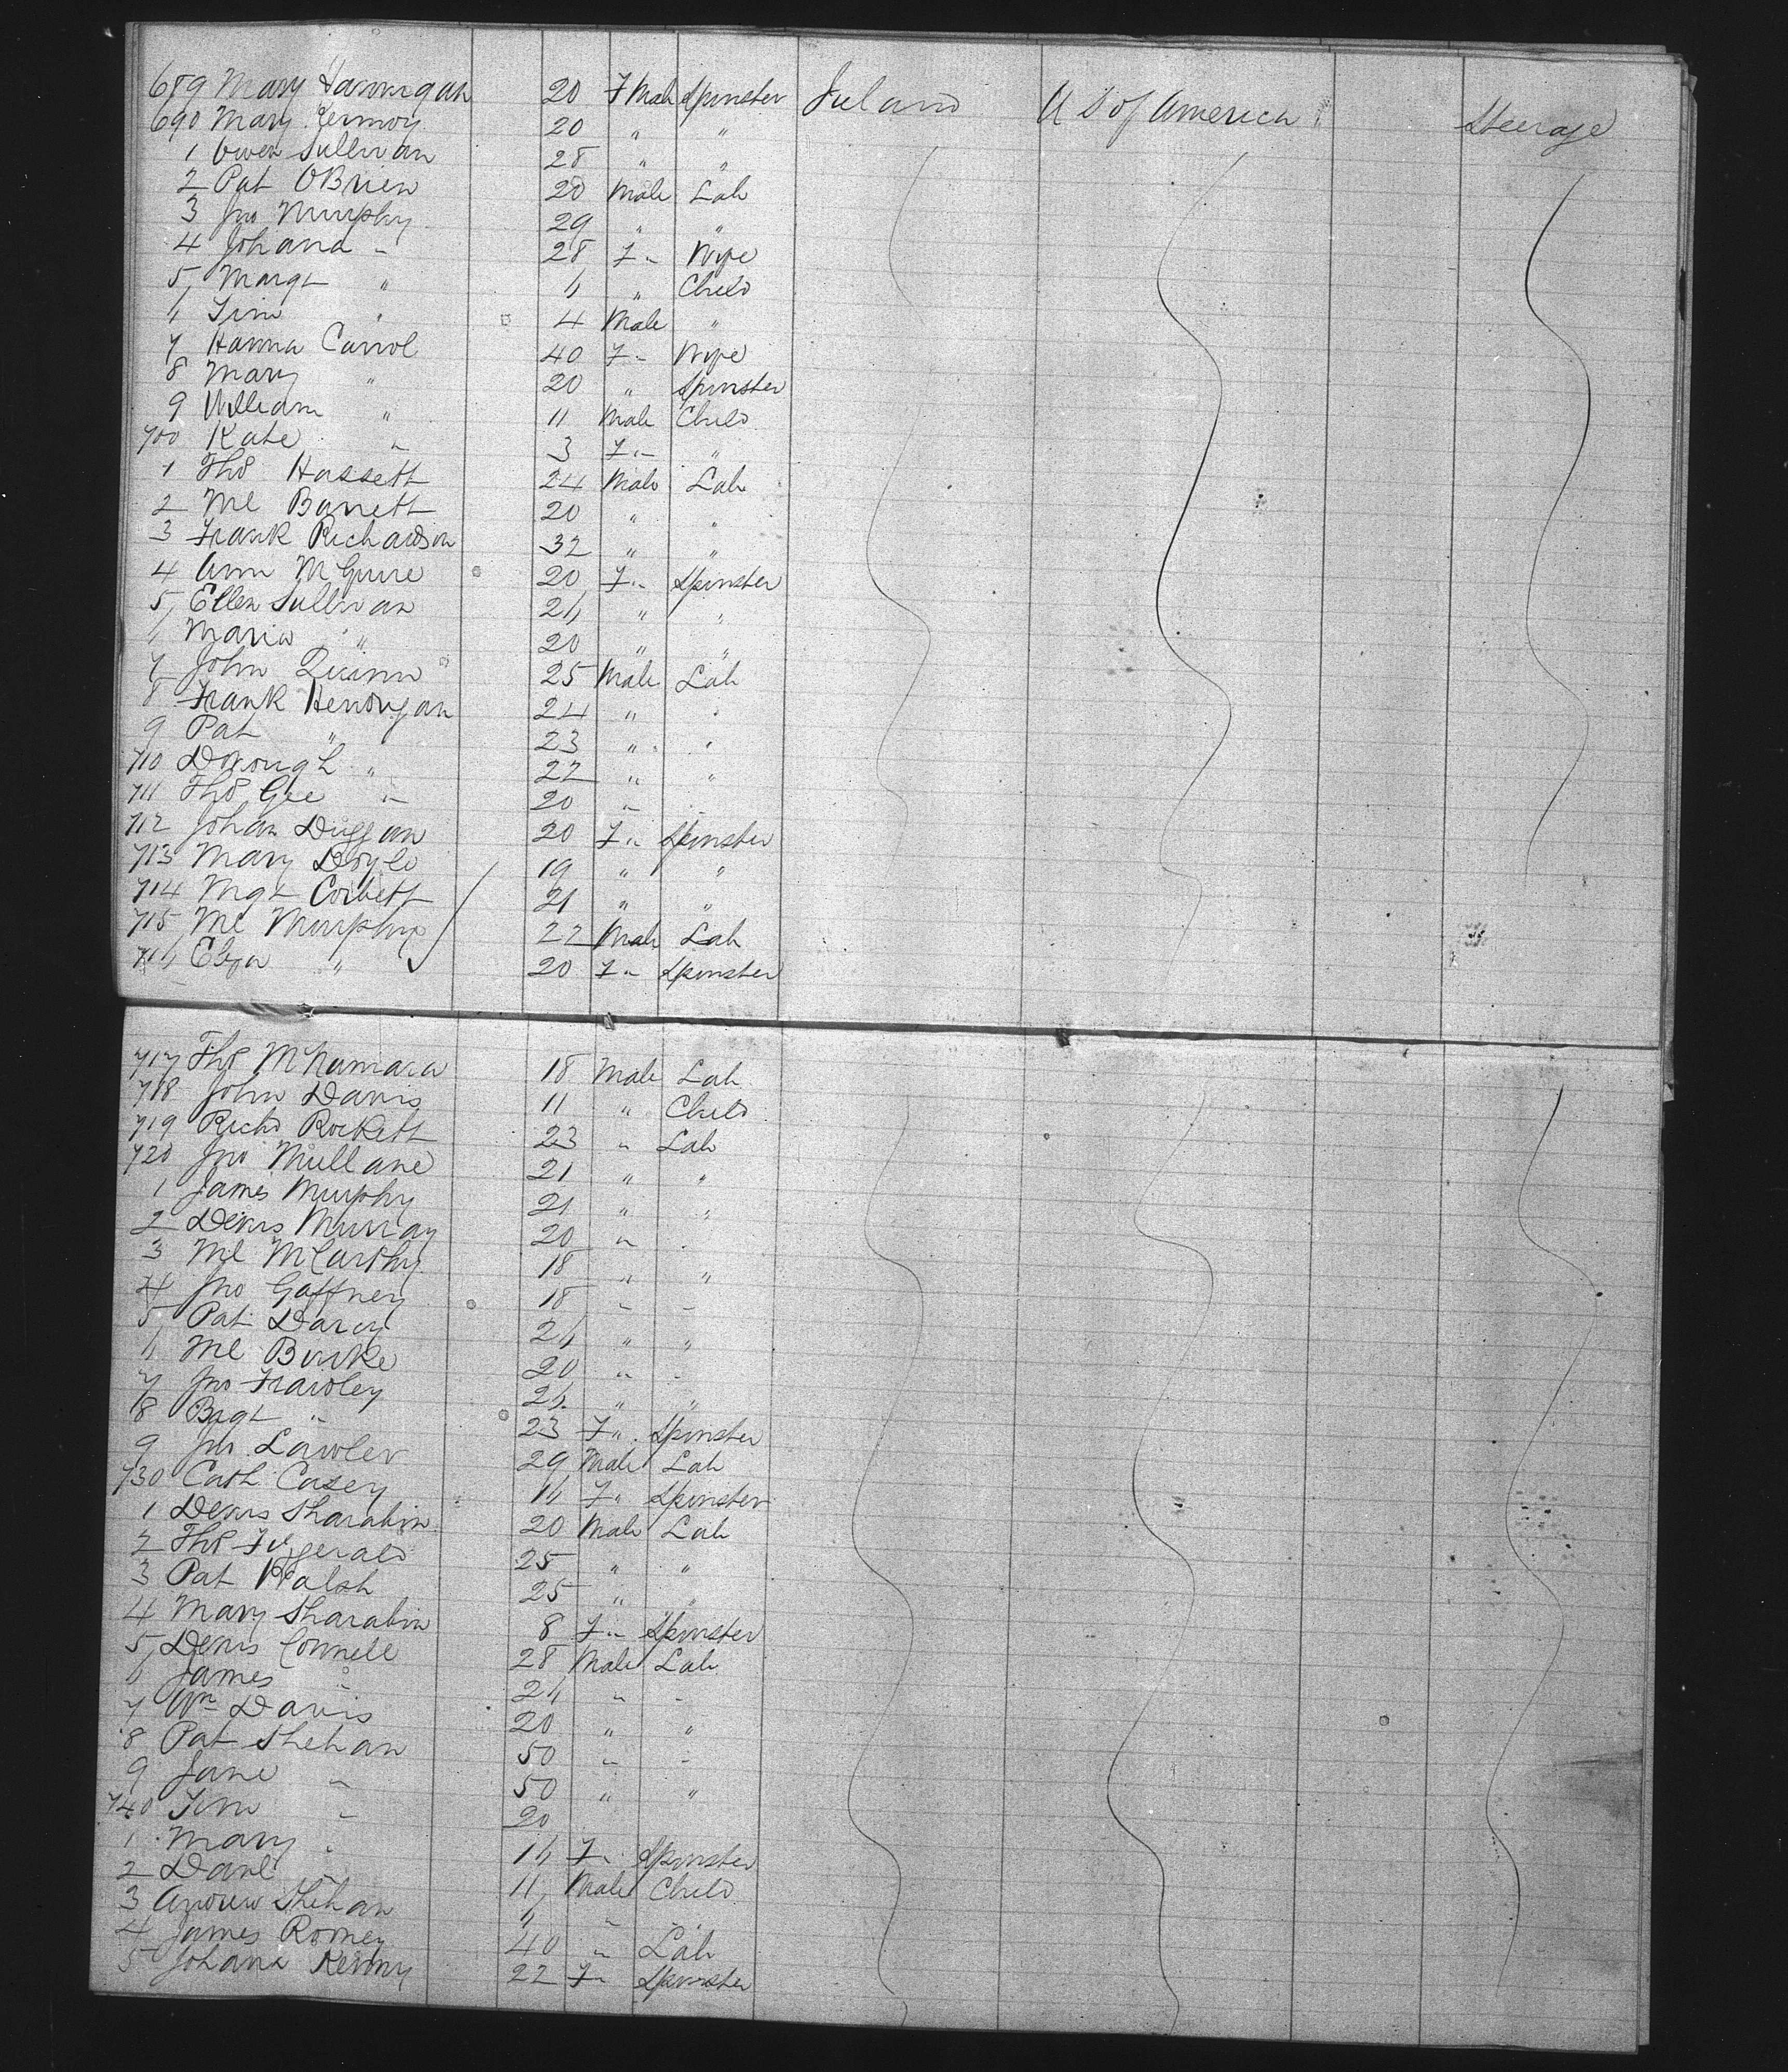 689 Mary Hannigan 20 F Male Spinster Ireland U S of America Steerage
690 Mary Kermoy 20 " "
1 Owen Sullivan 28 " "
2 Pat OBrien 20 Male Lab
3 Jno Murphy 29 " "
4 Johana " 28 F " Wife
5 Margt " 6 " Child
6 Tim " 4 Male "
7 Hanna Carrol 40 F " Wife
8 Mary " 20 " Spinster
9 William " 11 Male Child
700 Kate " 3 F " "
1 Thos Hassett 24 Male Lab
2 Ml Barrett 20 " "
3 Frank Richardson 32 " "
4 Ann McGuire 20 F " Spinster
5 Ellen Sullivan 26 " "
6 Maria " 20 " "
7 John Quinn 25 Male Lab
8 Frank 24 " "
9 Pat " 23 " "
710 " 22 " "
711 Thos Gee " 20 " "
712 Johan Duggan 20 F " Spinster
713 Mary Doyle 19 " "
714 Mgt Corbett 21 " "
715 Ml Murphy 22 Male Lab
716 Eliza " 20 F " Spinster
717 Thos McNamara 18 Male Lab
718 John Davis 11 " Child
719 Richd Rockett 23 " Lab
720 Jno Mullane 21 " "
1 James Murphy 21 " "
2 Denis Murray 20 " "
3 Ml McCarthy 18 " "
4 Jno Gaffney 18 " "
5 Pat Darcy 26 " "
6 Ml Burke 20 " "
7 Jno Frawley 26 " "
8 Bagt " 23 F " Spinster
9 Jno Lawler 29 Male Lab
730 Cath Casey 16 F " Spinster
1 Denis Sharabin 20 Male Lab
2 Thos Fitzgerald 25 " "
3 Pat Walsh 25 " "
4 Mary Sharabin 8 F " Spinster
5 Denis Connell 28 Male Lab
6 James " 26 " "
7 Wm Davis 20 " "
8 Pat Shehan 50 " "
9 Jane " 50 " "
740 Tim " 20
1 Mary " 16 F " Spinster
2 Danl " 11 Male Child
3 Andrew Shehan 6 " "
4 James Romey 40 " Lab
5 Johana Kenny 22 F " Spinster